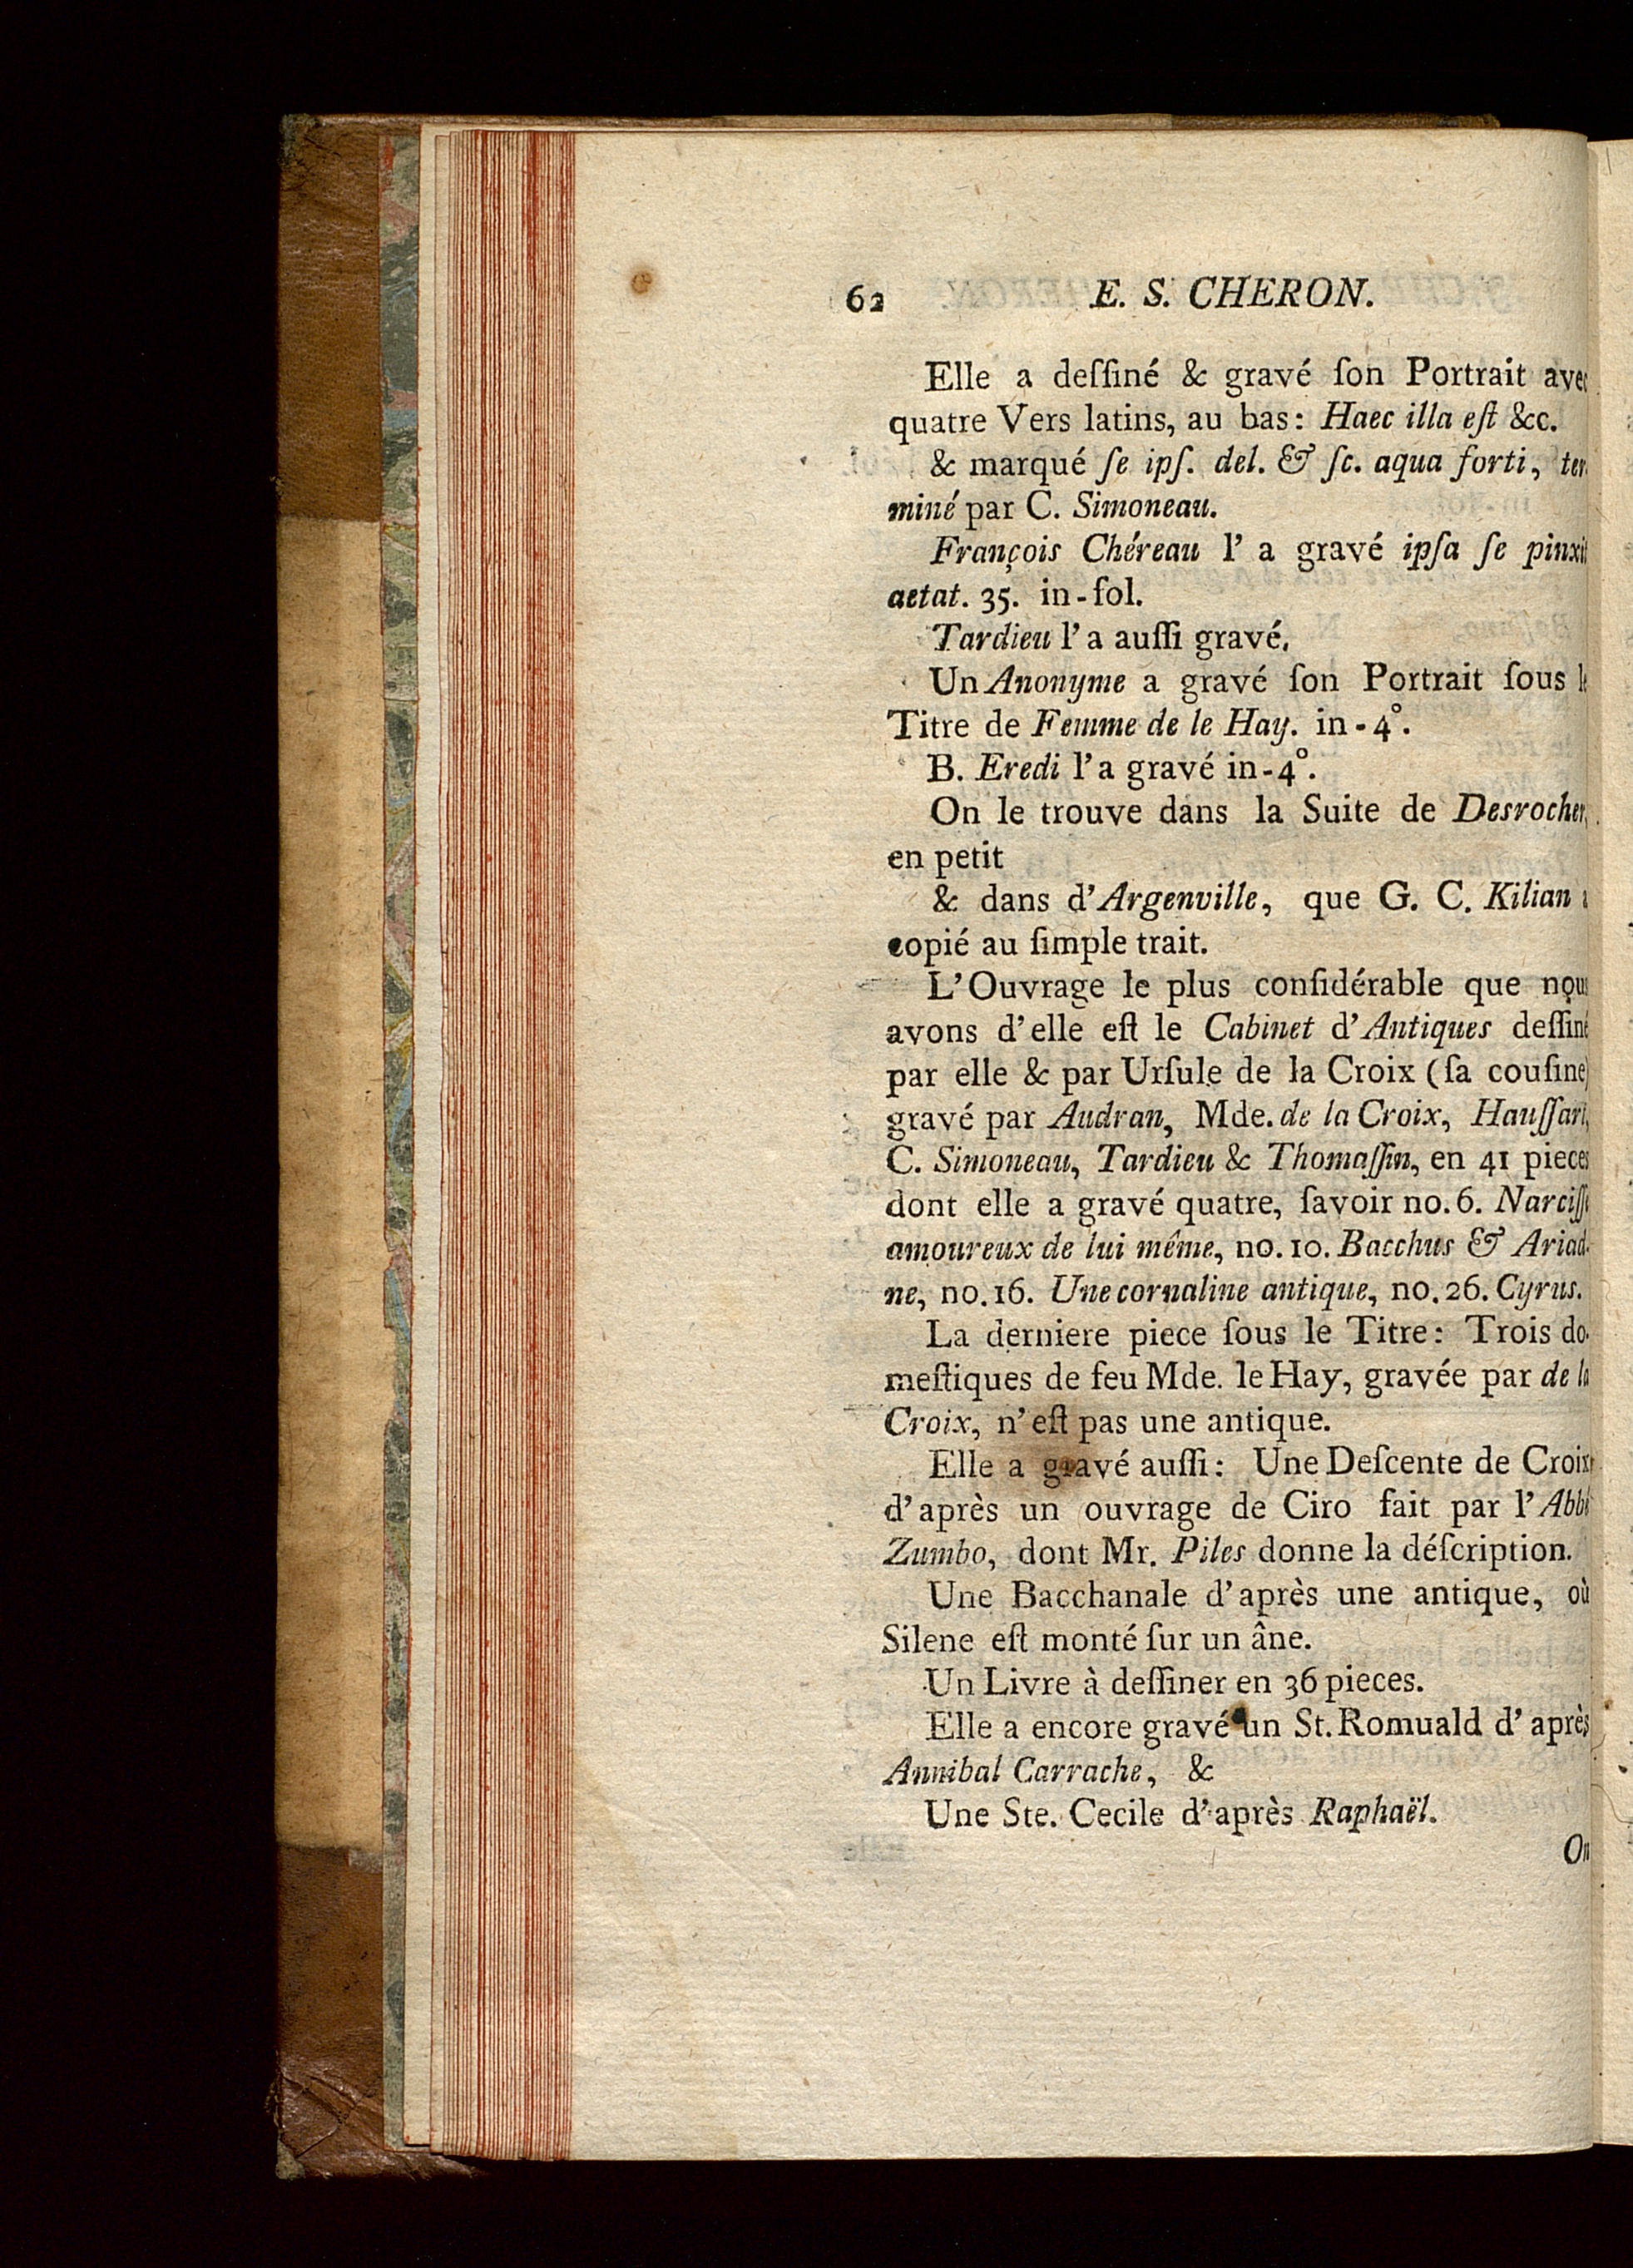 62 E. S. CHERON.
Elle a deſſiné & gravé ſon Portrait avec
quatre Vers latins, au bas: Haec illa eſt &c.
& marqué ſe ipſ. del. & ſc. aqua forti, ter-
miné par C. Simoneau.
François Chéreau l' a gravé ipſa ſe pinxit
aetat. 35. in-fol.
Tardieu l' a auſſi gravé.
Un Anonyme a gravé ſon Portrait ſous le
Titre de Femme de le Hay. in-4°.
B. Eredi l' a gravé in-4°.
On le trouve dans la Suite de Desrocher,
en petit
& dans d' Argenville, que G. C. Kilian a
copié au ſimple trait.
L'Ouvrage le plus conſidérable que nous
avons d' elle eſt le Cabinet d' Antiques deſſiné
par elle & par Urſule de la Croix (ſa couſine)
gravé par Audran, Mde. de la Croix, Hauſſart,
C. Simoneau, Tardieu & Thomaſſin, en 41 pieces
dont elle a gravé quatre, ſavoir no. 6. Narciſſe
amoureux de lui même, no. 10. Bacchus & Ariad-
ne, no. 16. Une cornaline antique, no. 26. Cyrus.
La derniere piece ſous le Titre: Trois do-
meſtiques de feu Mde. le Hay, gravée par de la
Croix, n' eſt pas une antique.
Elle a gravé auſſi: Une Deſcente de Croix,
d' après un ouvrage de Ciro fait par l' Abbé
Zumbo, dont Mr. Piles donne la déſcription.
Une Bacchanale d' après une antique, où
Silene eſt monté ſur un âne.
Un Livre à deſſiner en 36 pieces.
Elle a encore gravé un St. Romuald d' après
Annibal Carrache, &
Une Ste. Cecile d' après Raphaël.
On